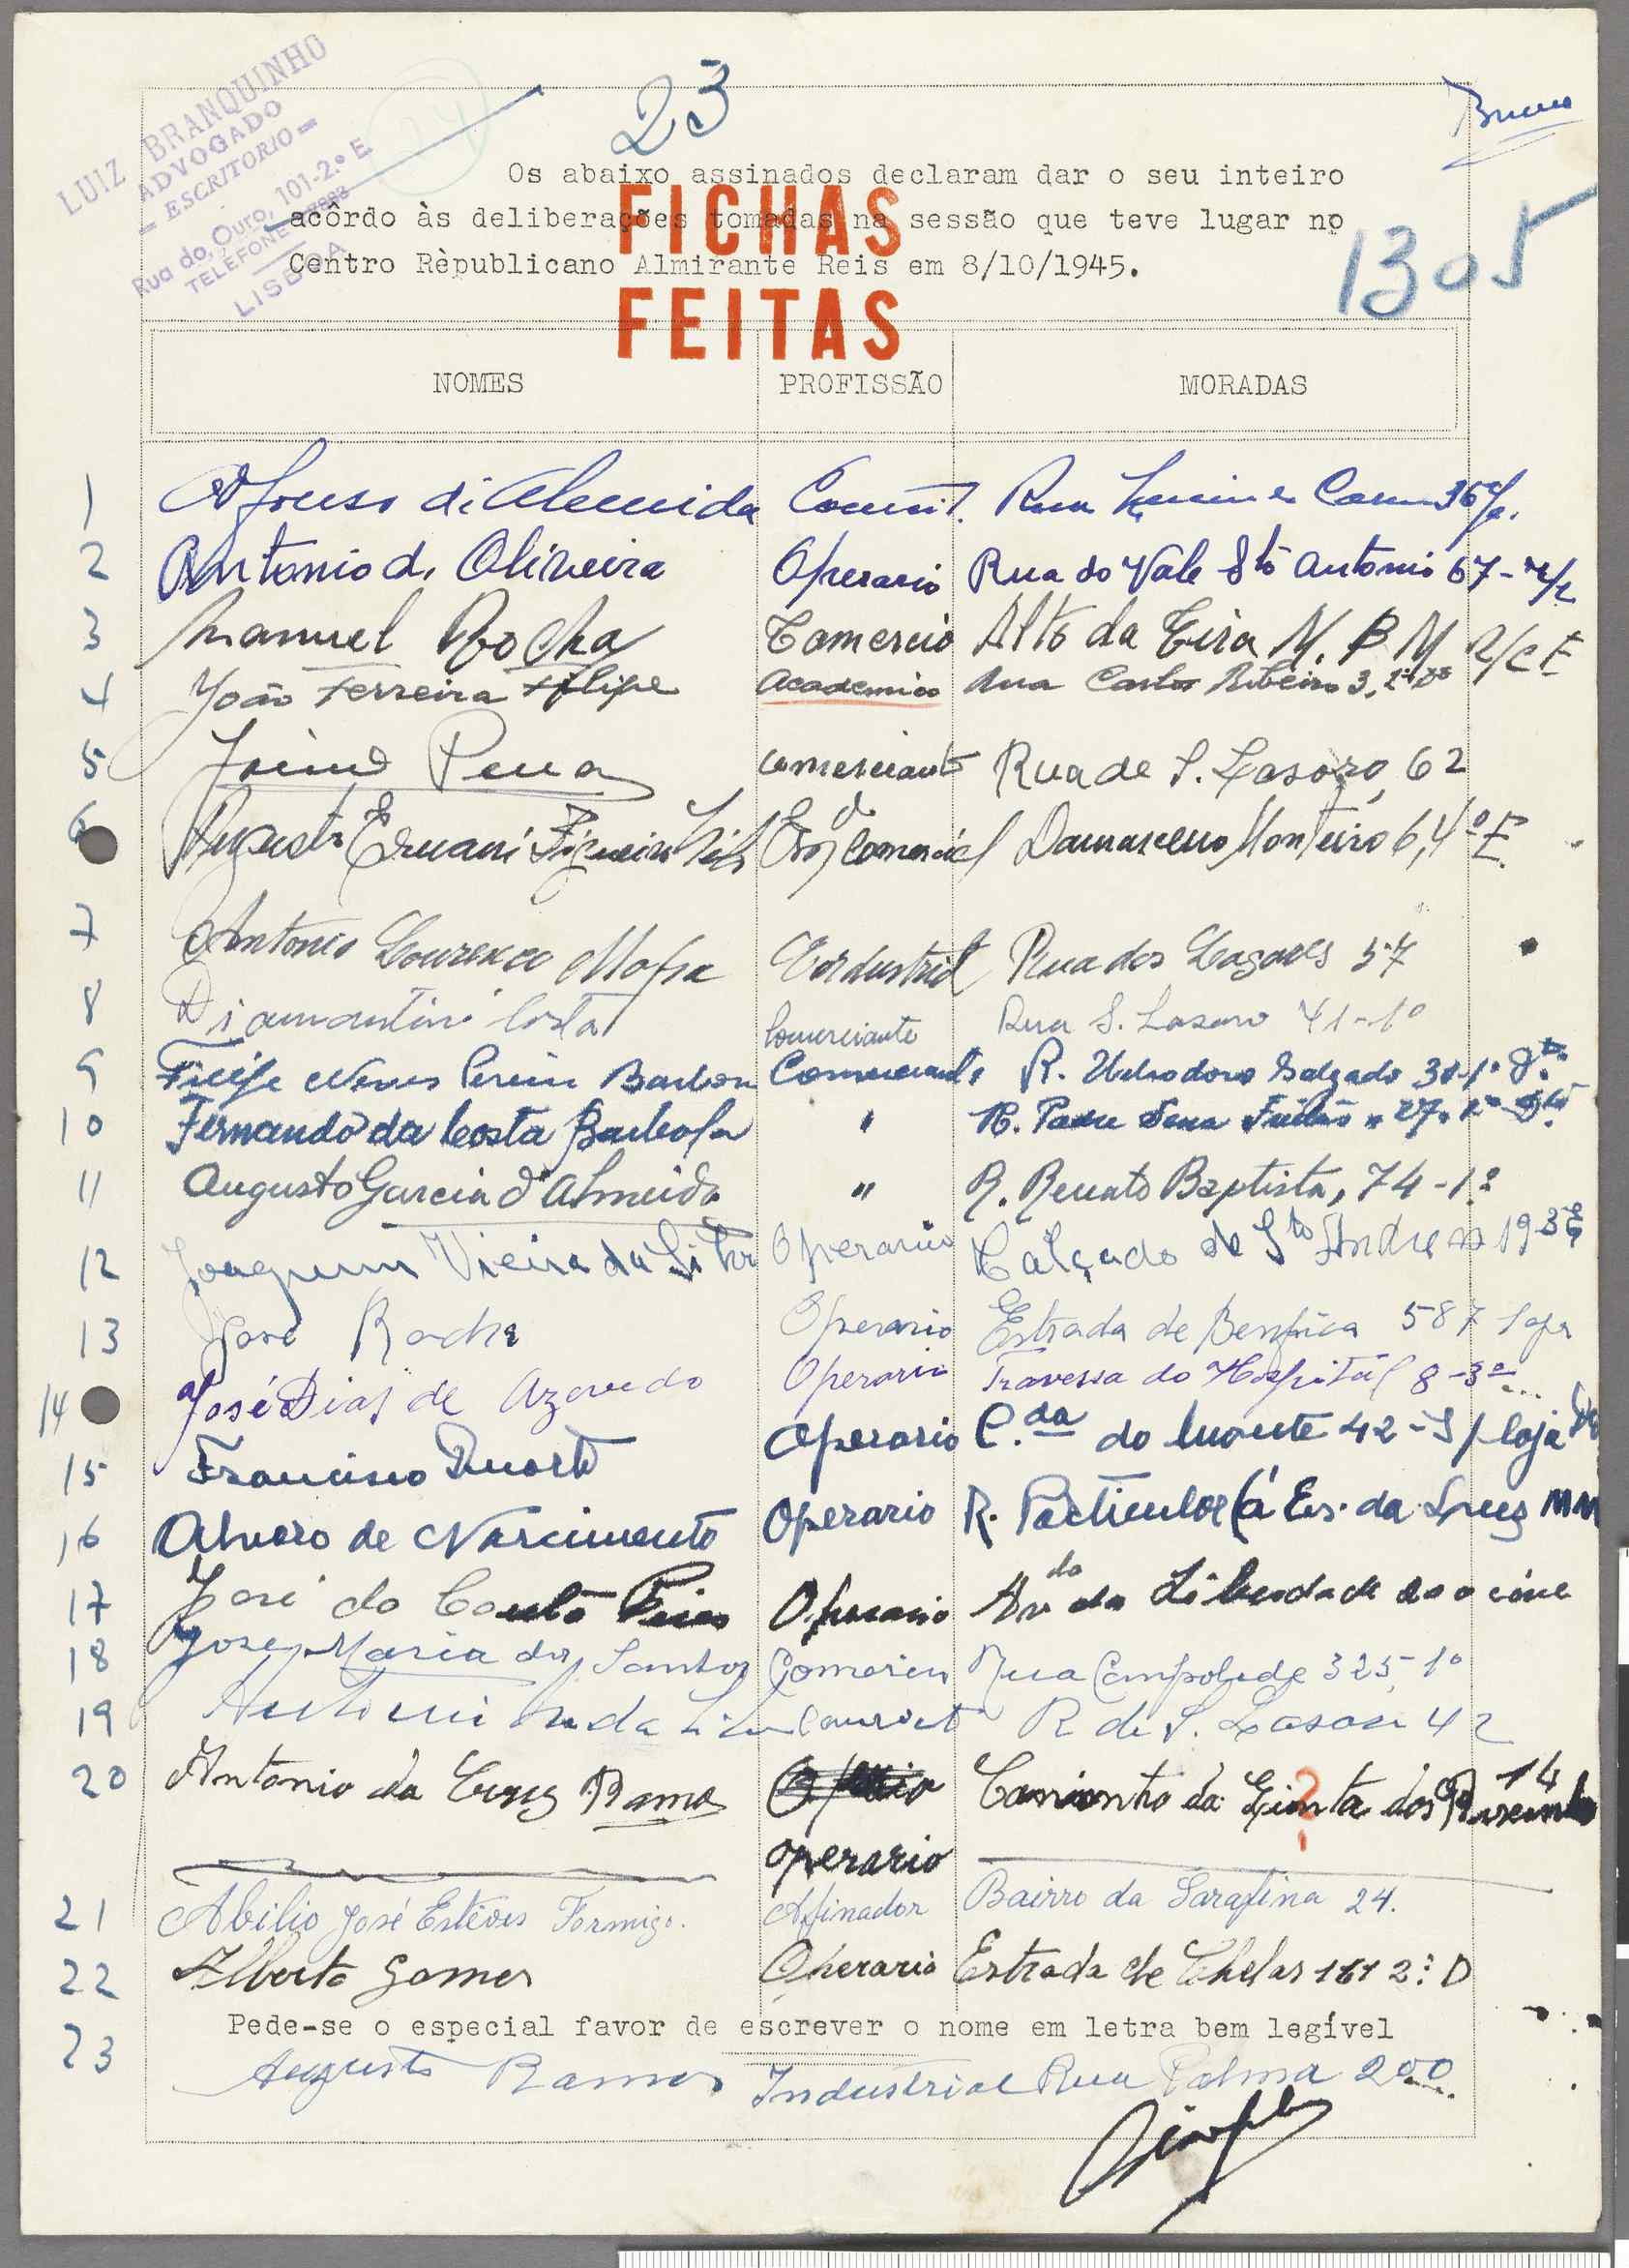 LUIZ BRANQUINHO
ADVOGADO
= ESCRITORIO =
Rua do Ouro, 101-2.º E.
TELEFONE
LISBOA
23
Os abaixo assinados declaram dar o seu inteiro
acôrdo às deliberações tomadas na sessão que teve lugar no
Centro Rèpublicano Almirante Reis em 8/10/1945.
1305
FICHAS
FEITAS
NOMES PROFISSÃO MORADAS
1 Afonso de Almeida Rua 36
2 Antonio d. Oliveira Operario Rua do Vale Stº Antonio 67-r/c
3 Manuel Rocha Comercio Alto da Eira N. B M R/C E
4 João Ferreira Filipe Academico Rua Carlos Ribeiro 3, 2º
5 Jaime Pena comerciante Rua de S. Lasaro, 62
6 Augusto Ernani Figueira Comercial Damasceno Monteiro 6, 4º E.
7 Antonio Lourenco Mafra Endustrial Rua dos Lagares 57
8 Diamantino Costa Comerciante Rua S. Lasaro 41-1º
9 Filipe Neves Pereira Barbosa Comerciante R. Heliodoro Salgado 30-1º
10 Fernando da Costa Barbosa " R. Padre Sena Freitas
11 Augusto Garcia d'Almeida " R. Renato Baptista, 74-1º
12 Joaquim Vieira da Silva Operario Calçada de Sto Andre nº 19 3º E
13 José Rocha Operario Estrada de Benfica 587 loja
14 José Dias de Azevedo Operario Travessa do Hospital 8-3º
15 Francisco Duarte Operario C.da do Monte 42-S/loja
16 Alvaro de Nascimento Operario R. Particular (á Es. da Luz MM
17 José do Couto Operario Av da Liberdade
18 Jose Maria dos Santos Comercio Rua Campolide 325, 1º
19 R de S. Lasaro 42
20 Antonio da Cruz Ramos operario da dos 14
21 Abilio José Estèves Formigo. Afinador Bairro da Sarafina 24.
22 Alberto Gomes Operario Estrada de Chelas 161 2º D
Pede-se o especial favor de escrever o nome em letra bem legível
23 Augusto Ramos Industrial Rua Palma 200